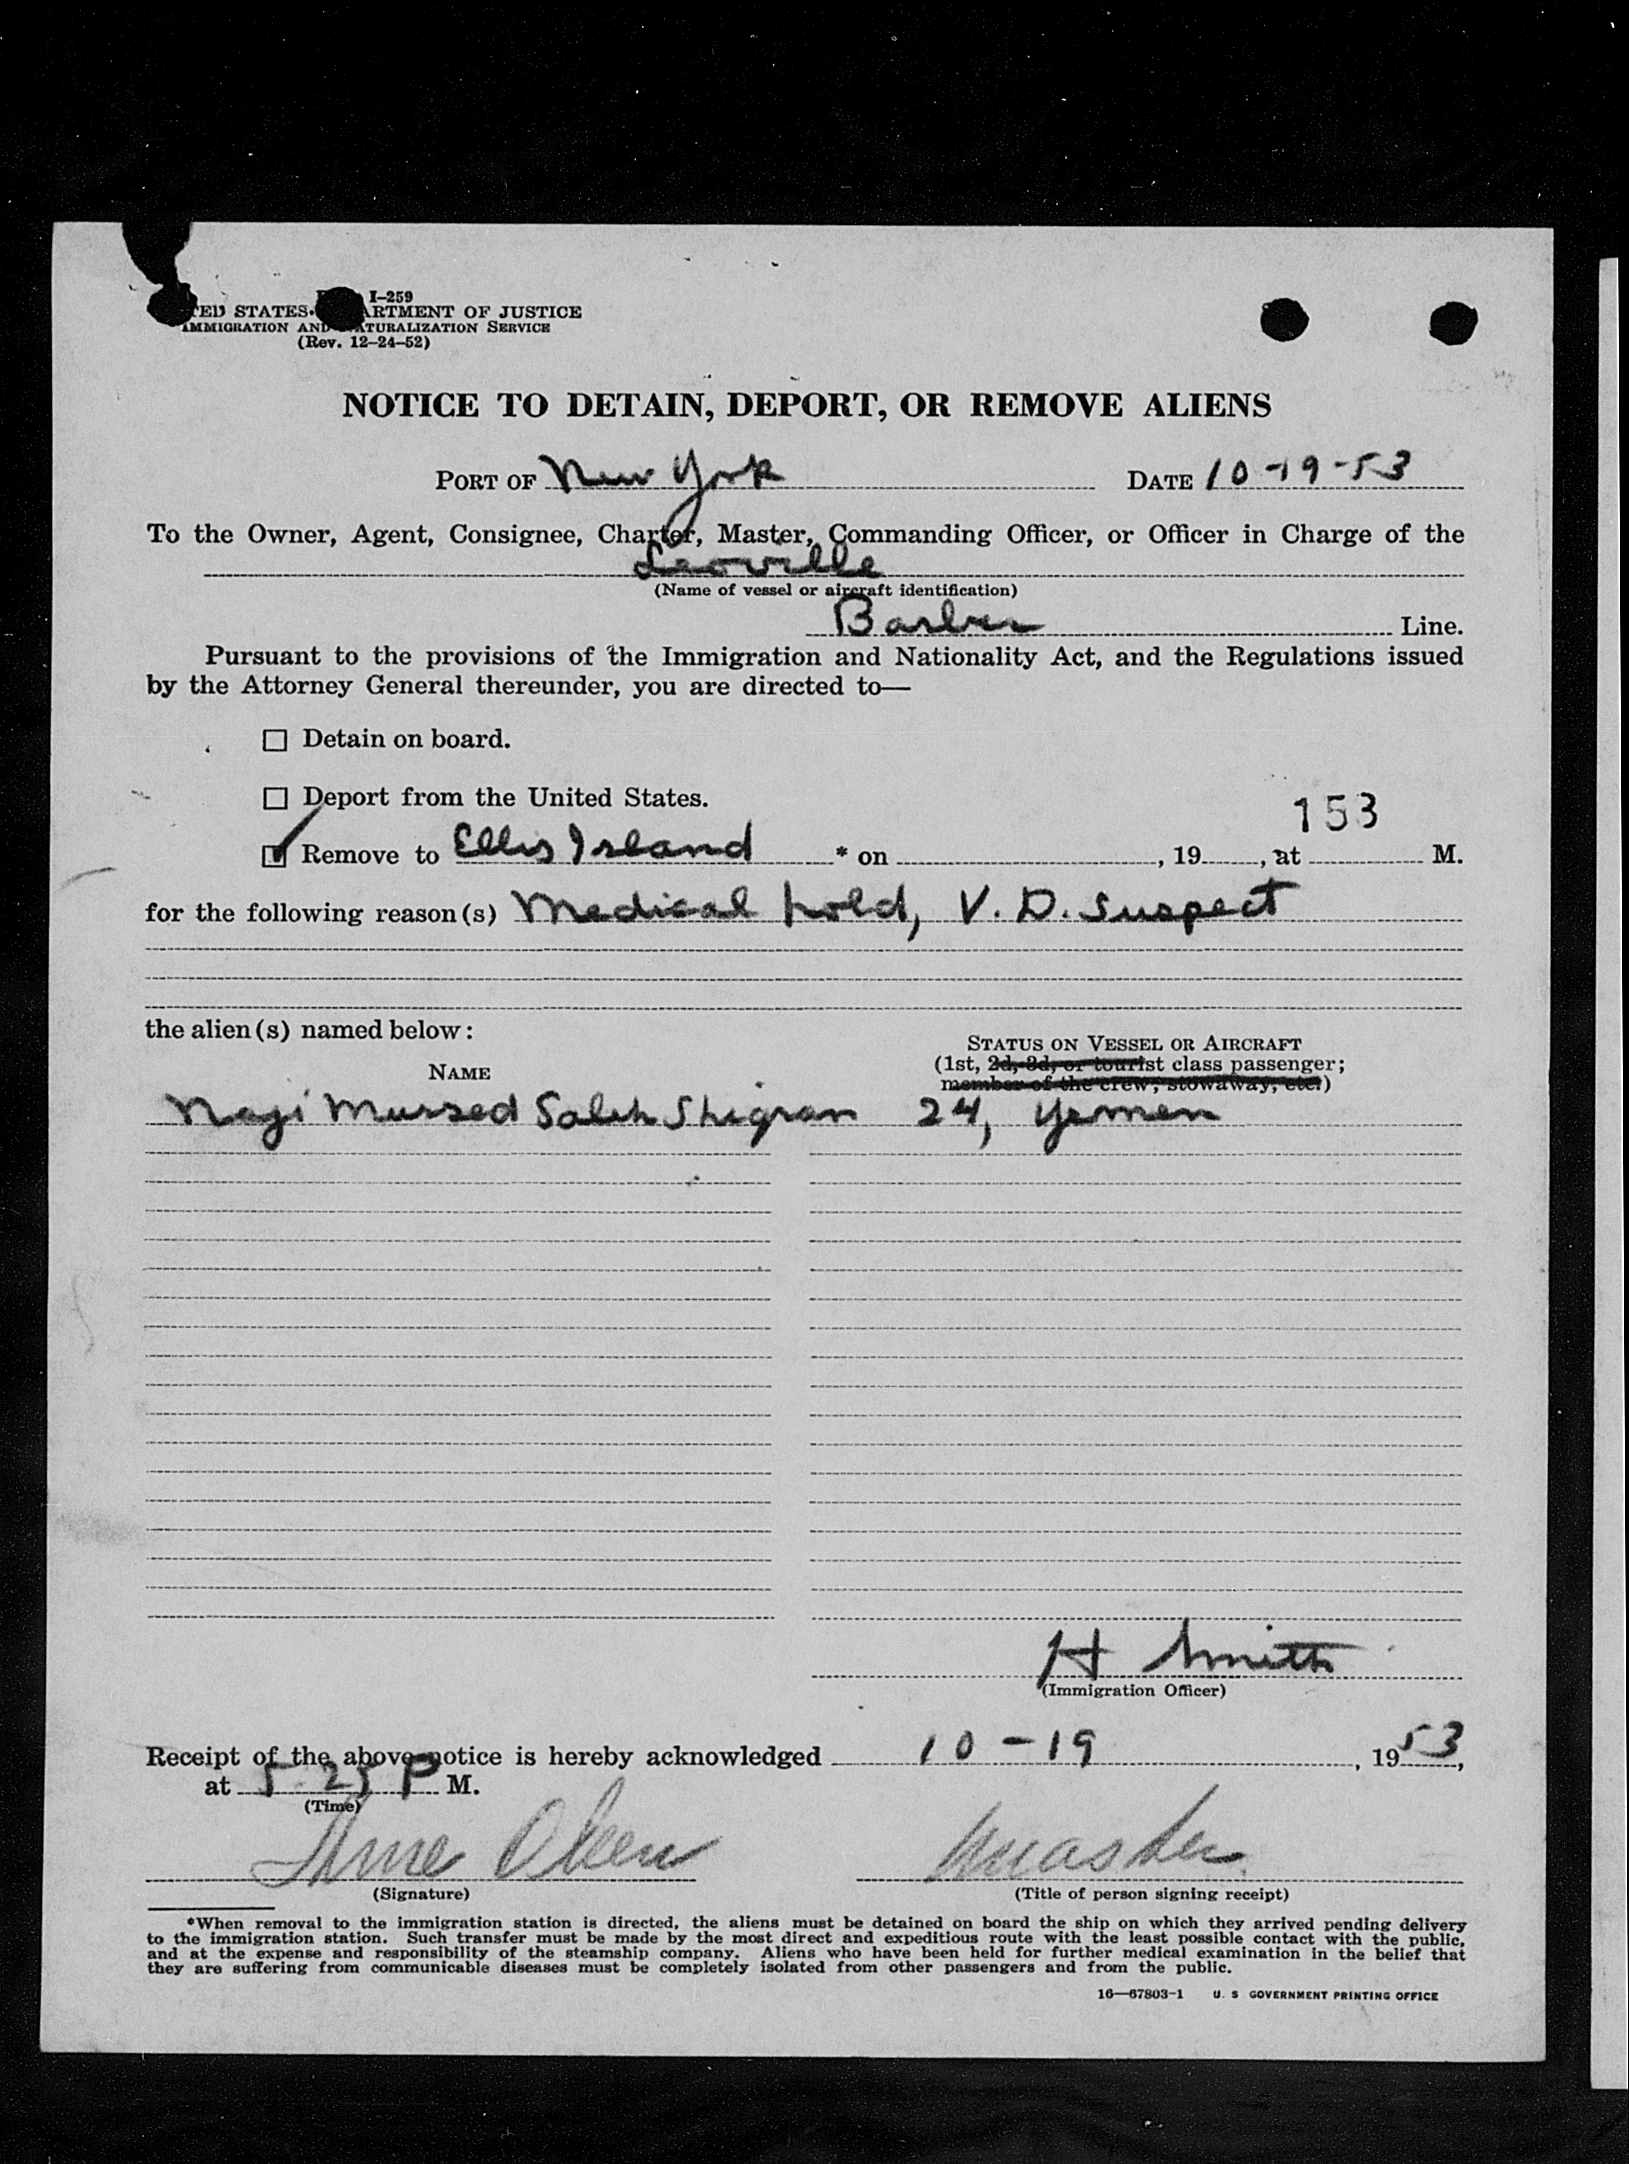 I-259
TED STATES ARTMENT OF JUSTICE
IMMIGRATION AND NATURALIZATION SERVICE
(Rev. 12-24-52)
NOTICE TO DETAIN, DEPORT, OR REMOVE ALIENS
PORT OF New York DATE 10-19-53
To the Owner, Agent, Consignee, Charter, Master, Commanding Officer, or Officer in Charge of the
Leoville
(Name of vessel or aircraft identification)
Barber Line.
Pursuant to the provisions of the Immigration and Nationality Act, and the Regulations issued
by the Attorney General thereunder, you are directed to—
☐ Detain on board.
☐ Deport from the United States.
153
☑ Remove to Ellis Island * on , 19 , at M.
for the following reason(s) Medical hold, V. D. Suspect
the alien(s) named below:
STATUS ON VESSEL OR AIRCRAFT
(1st, 2d, 3d, or tourist class passenger;
NAME
member of the crew; stowaway, etc.)
Nagi Mussed Saleh Shigran 24, Yemen
H Smith
(Immigration Officer)
Receipt of the above notice is hereby acknowledged 10-19, 1953,
at 5:25 P M.
(Time)
Arne Olsen Master
(Signature) (Title of person signing receipt)
*When removal to the immigration station is directed, the aliens must be detained on board the ship on which they arrived pending delivery
to the immigration station. Such transfer must be made by the most direct and expeditious route with the least possible contact with the public,
and at the expense and responsibility of the steamship company. Aliens who have been held for further medical examination in the belief that
they are suffering from communicable diseases must be completely isolated from other passengers and from the public.
16—67803-1 U. S GOVERNMENT PRINTING OFFICE